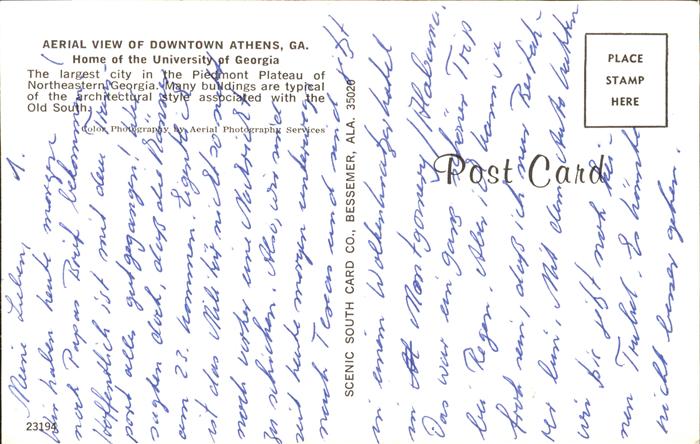 AERIAL VIEW OF DOWNTOWN ATHENS, GA.
Home of the University of Georgia
The largest city in the Piedmont Plateau of
Northeastern Georgia. Many buildings are typical
of the architectural style associated with the
Old South.
Color Photography by Aerial Photography Services
PLACE
STAMP
HERE
Post Card
SCENIC SOUTH CARD CO., BESSEMER, ALA. 35020
23194
Meine Lieben,
wir haben heute morgen
noch Papas Brief bekommen.
Hoffentlich ist mit dem Trans-
port alles gutgegangen! Sie
sagten doch, daß die Männer
am 23. kommen. Eigentlich
ist das Militär nicht so
noch vorher eine Nachricht
zu schicken. Also, wir sind
seit heute morgen unterwegs
nach Texas und sind jetzt
in einem Wolkenkratzerhotel
in Montgomery / Alabama.
Das war ein ganz schöner Trip
bei Regen. Aber ich kann ja
froh sein, daß ich nur
bin. Mit dem Auto hatten
wir bis jetzt noch kei-
nen Trubel. Es könnte
nicht besser gehen.